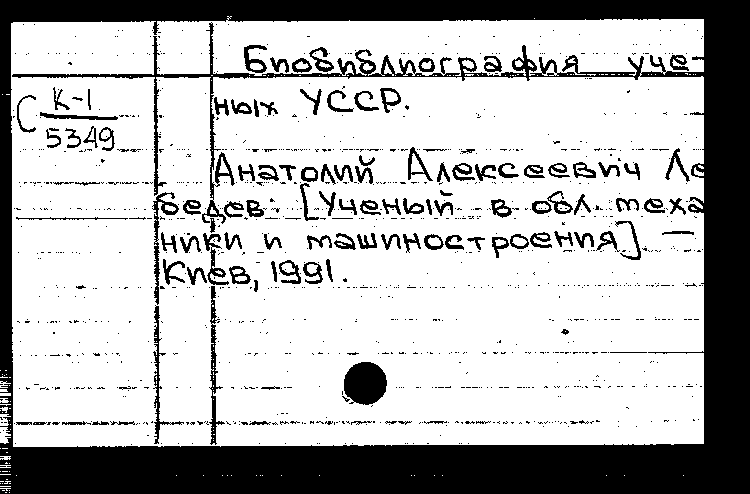 Биобиблиография уче-
ных УССР.
С К-1
5349
Анатолий Алексеевич Ле
бедев: [Ученый в обл. меха
ники и машиностроения]. —
Киев, 1991.